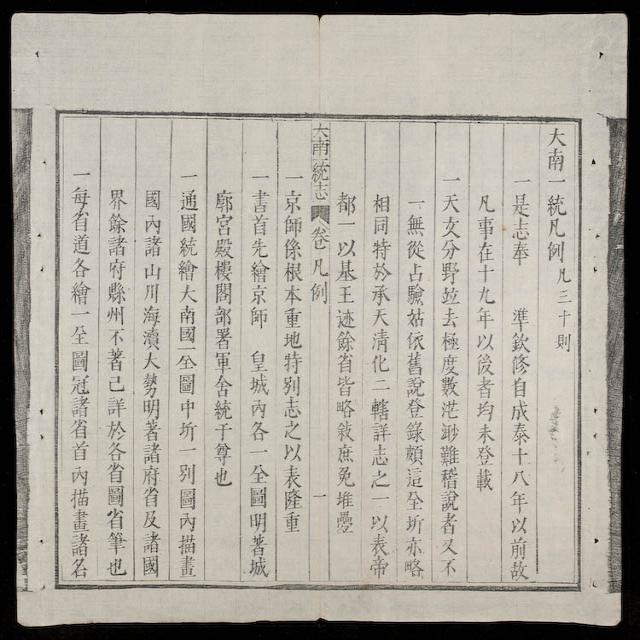 大南一統凡例凡三十則
一是志奉　準欽修自成泰十八年以前故
凡事在十九年以後者均未登載
一天文分野竝去極度數茫渺難稽說者又不
一無從占驗姑依舊說登錄頻這全圻亦略
相同特於承天清化二轄詳志之一以表帝
都一以基王迹餘省皆略敘庶免堆疊
大南統志　卷　凡例　一
一京師係根本重地特別志之以表隆重
一書首先繪京師　皇城內各一全圖明著城
廓宮殿樓閣部署軍舍統于尊也
一通國統繪大南國一全圖中圻一別圖內描畫
國內諸山川海瀆大勢明著諸府省及諸國
界餘諸府縣州不著已詳於各省圖省筆也
一每省道各繪一全圖冠諸省首內描畫諸名